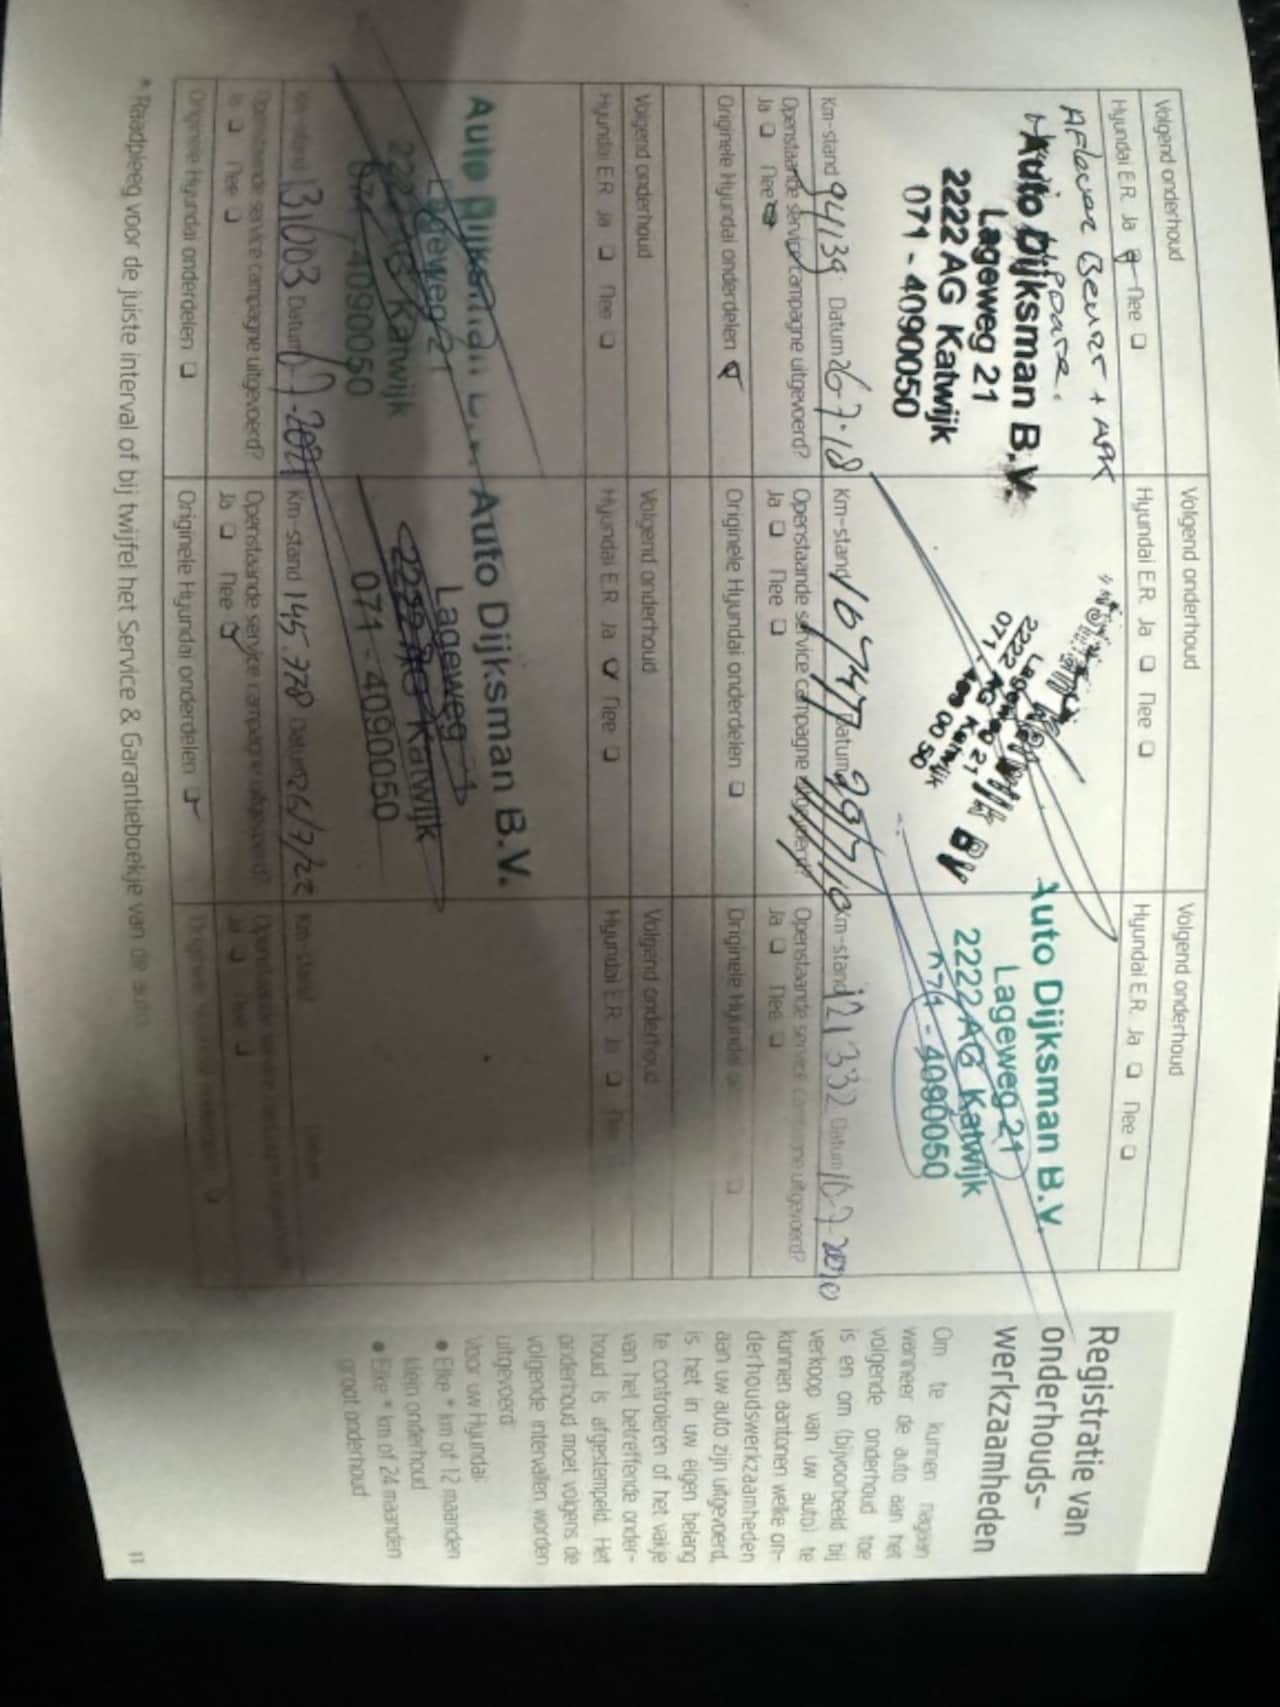 Registratie van
onderhouds-
werkzaamheden
Om te kunnen nagaan
wanneer de auto aan het
volgende onderhoud toe
is en om (bijvoorbeeld bij
verkoop van uw auto) te
kunnen aantonen welke on-
derhoudswerkzaamheden
aan uw auto zijn uitgevoerd,
is het in uw eigen belang
te controleren of het vakje
van het betreffende onder-
houd is afgestempeld. Het
onderhoud moet volgens de
volgende intervallen worden
uitgevoerd:
Voor uw Hyundai:
• Elke * km of 12 maanden
klein onderhoud
• Elke * km of 24 maanden
groot onderhoud
Volgend onderhoud
Hyundai E.R. Ja Nee
+ APK
Auto Dijksman B.V.
Lageweg 21
2222 AG Katwijk
071 - 4090050
Km-stand 94139 Datum 26-7-18
Openstaande service campagne uitgevoerd?
Ja Nee
Originele Hyundai onderdelen
Volgend onderhoud
Hyundai E.R. Ja Nee
Lageweg 21
2222 AG Katwijk
071 - 400 00 50
Km-stand 107477 Datum
Openstaande service campagne
Ja Nee
Originele Hyundai onderdelen
Volgend onderhoud
Hyundai E.R. Ja Nee
Auto Dijksman B.V.
Lageweg 21
2222 AG Katwijk
071 - 4090050
Km-stand 121332 Datum 10-7-2020
Openstaande service campagne uitgevoerd?
Ja Nee
Originele Hyundai
Volgend onderhoud
Hyundai E.R. Ja Nee
Auto Dijksman
Lageweg 21
2222 AG Katwijk
071 - 4090050
Km-stand 131003 Datum
Openstaande service campagne uitgevoerd?
Ja Nee
Originele Hyundai onderdelen
Volgend onderhoud
Hyundai E.R. Ja Nee
Auto Dijksman B.V.
Lageweg
2222 AG Katwijk
071 - 4090050
Km-stand 145.778 Datum 26/7/22
Openstaande service campagne uitgevoerd?
Ja Nee
Originele Hyundai onderdelen
Volgend onderhoud
Hyundai E.R. Ja Nee
Km-stand
Ja Nee
* Raadpleeg voor de juiste interval of bij twijfel het Service & Garantieboekje van de auto.
11